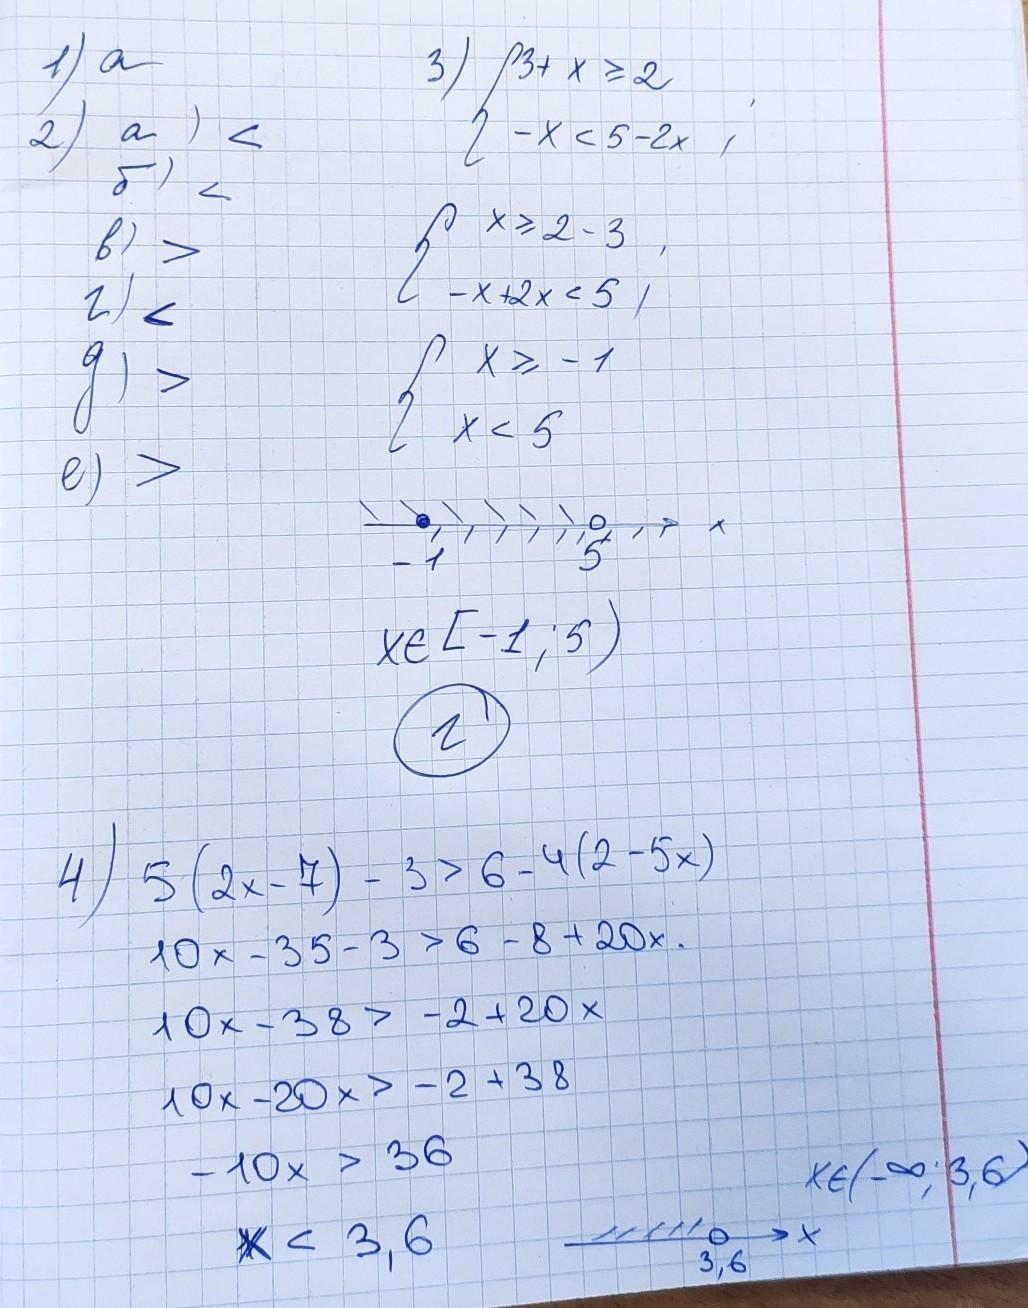 1) а
2) а) <
б) <
в) >
г) <
д) >
е) >
3) { 3 + x ≥ 2
-x < 5 - 2x ,
{ x ≥ 2 - 3 ,
-x + 2x < 5 ,
{ x ≥ -1
x < 5
x
-1 5
x ∈ [-1; 5)
г)
4) 5(2x - 7) - 3 > 6 - 4(2 - 5x)
10x - 35 - 3 > 6 - 8 + 20x.
10x - 38 > -2 + 20x
10x - 20x > -2 + 38
-10x > 36
x < 3,6
x
3,6
x ∈ (-∞; 3,6)